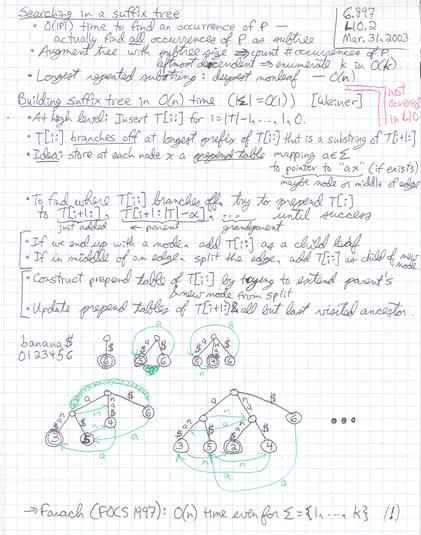 Searching in a suffix tree
6.897
L10.2
Mar. 31, 2003
• O(|P|) time to find an occurrence of P —
actually find all occurrences of P as subtree
• Augment tree with subtree size ⇒ count # occurrences of P
leftmost descendent ⇒ enumerate k in O(k).
• Longest repeated substring: deepest nonleaf — O(n)
Building suffix tree in O(n) time (|Σ|=O(1)) [Weiner]
not
covered
in L10
• At high level: Insert T[i:] for i=|T|-1, ..., 1, 0.
• T[i:] branches off at longest prefix of T[i:] that is a substring of T[i+1:]
• Idea: store at each node x a prepend table mapping a∈Σ
to pointer to "ax" (if exists)
maybe node or middle of edge
• To find where T[i:] branches off, try to prepend T[i]
to T[i+1:], T[i+1:|T|-α], ... until success
just added ← parent grandparent
• If we end up with a node, add T[i:] as a child leaf
• If in middle of an edge, split the edge, add T[i:] as child of new
node
• Construct prepend table of T[i:] by trying to extend parent's
& new node from split
• Update prepend tables of T[i+1:] & all but last visited ancestor.
banana$
0123456
$
6
a
$
5
6
a
5
4
6
a
$
n
3
5
4
6
a
$
n
3
5
2
4
6
...
→ Farach (FOCS 1997): O(n) time even for Σ={1, ..., k} (!)